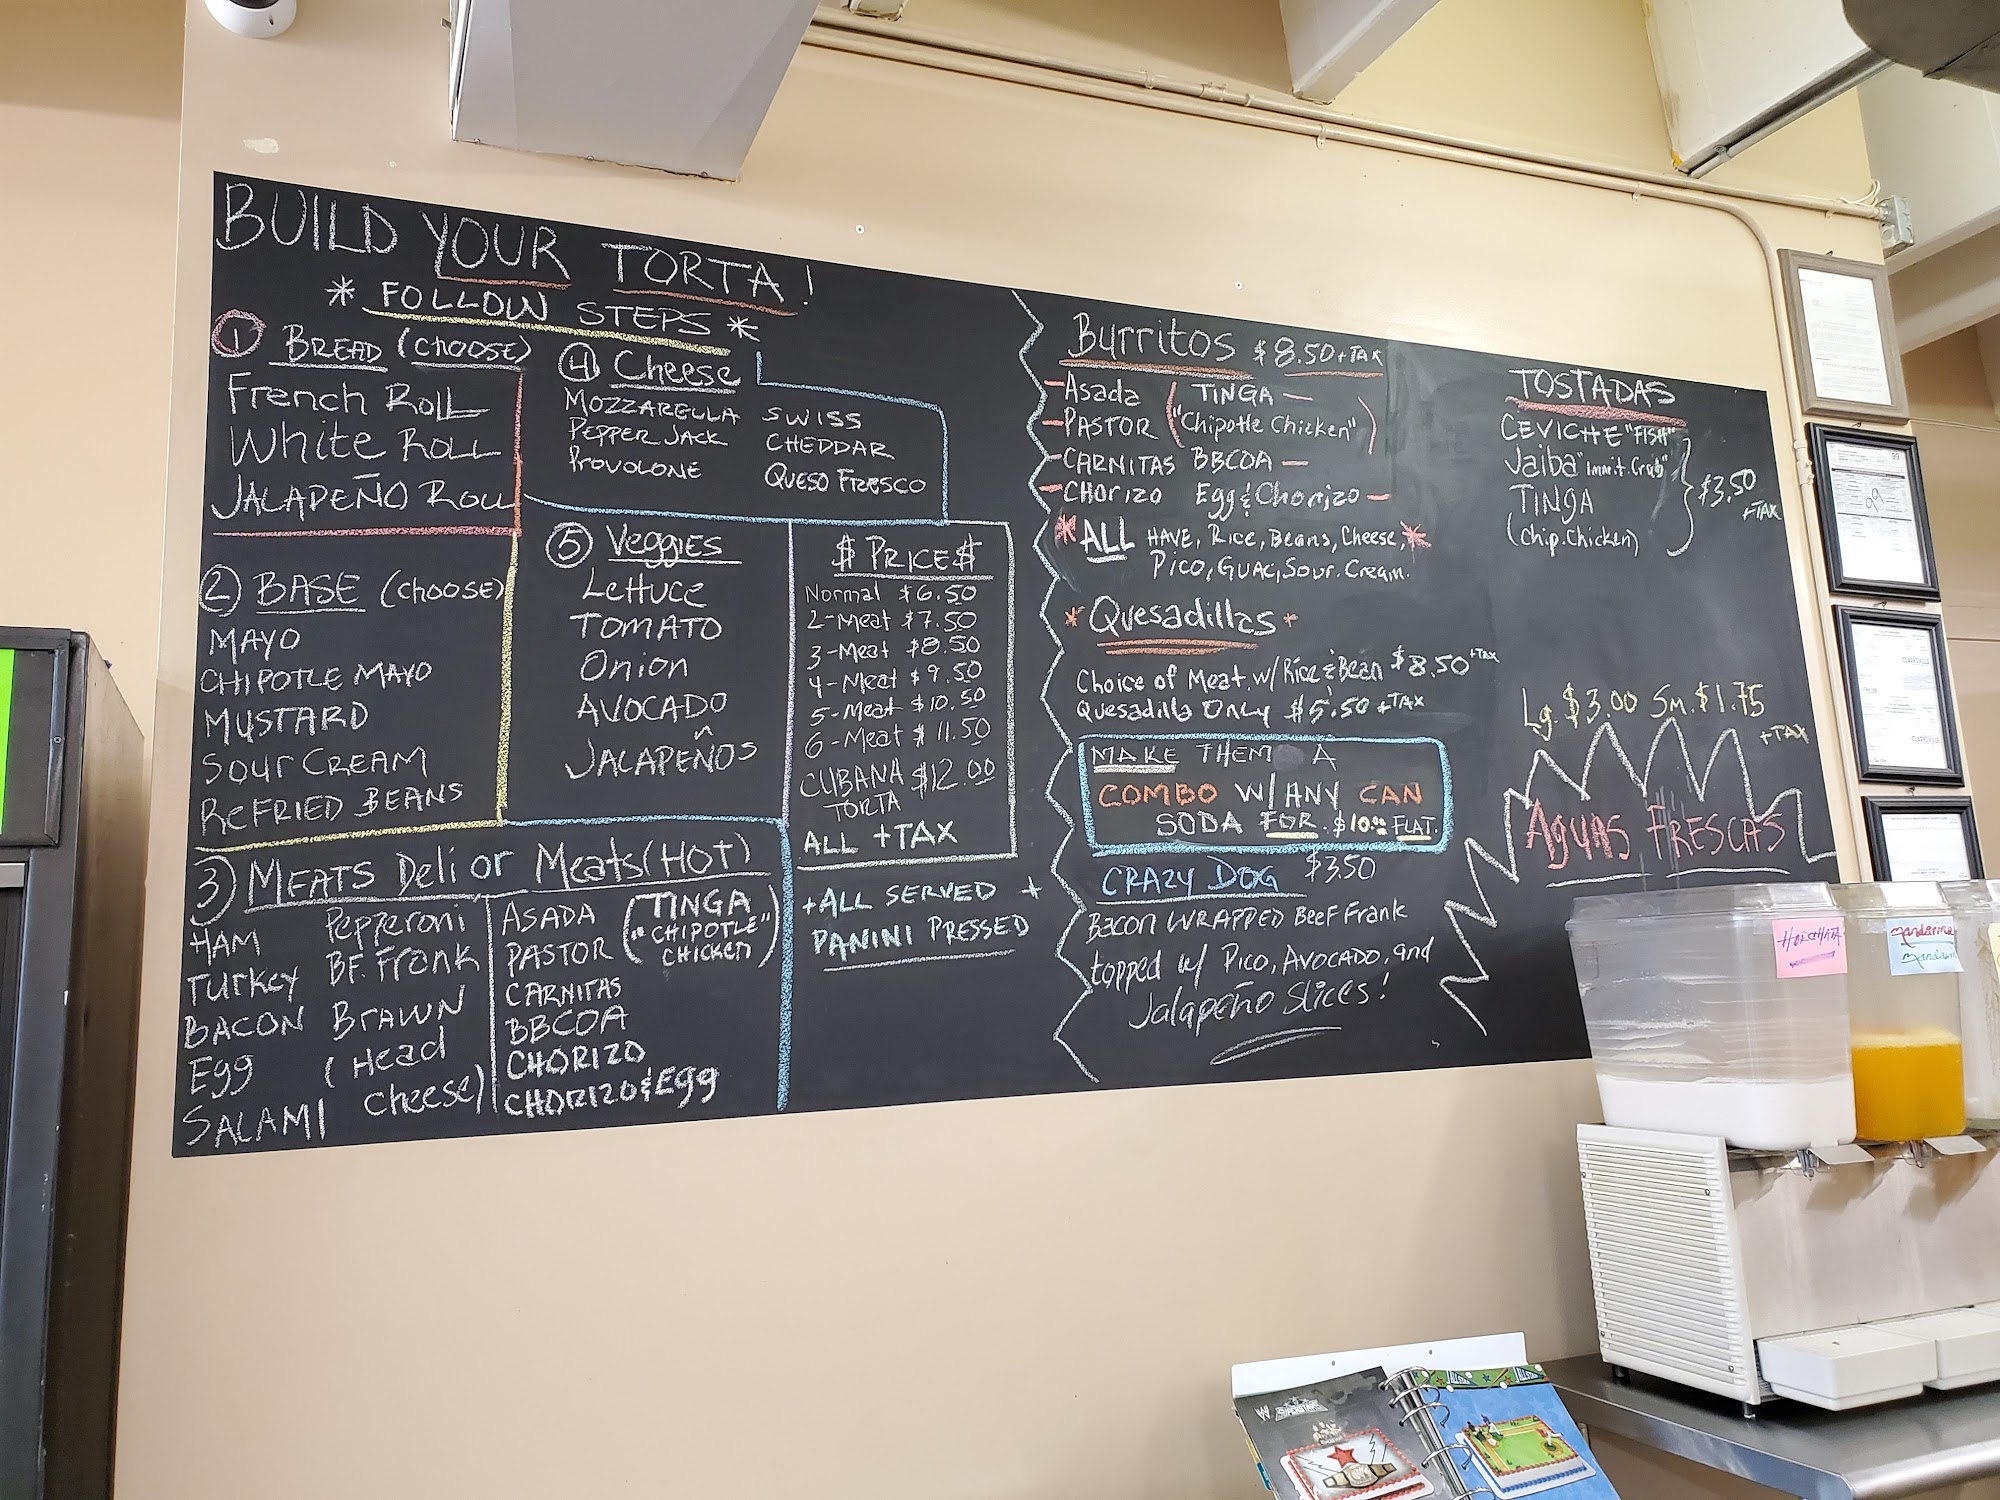 BUILD YOUR TORTA!
* FOLLOW STEPS *
① BREAD (CHOOSE)
French Roll
White Roll
JALAPEÑO Roll
② BASE (CHOOSE)
MAYO
CHIPOTLE MAYO
MUSTARD
SOUR CREAM
REFRIED BEANS
3) MEATS Deli or Meats (HOT)
HAM
Turkey
BACON
Egg
SALAMI
Pepperoni
BF. Frank
BRAWN
(Head
cheese)
ASADA
PASTOR
CARNITAS
BBCOA
CHORIZO
CHORIZO & Egg
(TINGA
"CHIPOTLE"
CHICKEN)
④ Cheese
MOZZARELLA
PEPPER JACK
PROVOLONE
SWISS
CHEDDAR
QUESO FRESCO
⑤ Veggies
Lettuce
TOMATO
Onion
AVOCADO
JALAPEÑOS
$ PRICE $
Normal $6.50
2-Meat $7.50
3-Meat $8.50
4-Meat $9.50
5-Meat $10.50
6-Meat $11.50
CUBANA $12.00
TORTA
ALL +TAX
+ALL SERVED +
PANINI PRESSED
Burritos $8.50+TAX
- Asada (TINGA -
- PASTOR "Chipotle Chicken")
- CARNITAS BBCOA -
- CHORIZO Egg & Chorizo -
* ALL HAVE, Rice, Beans, Cheese, *
Pico, GUAC, Sour. Cream.
* Quesadillas *
Choice of Meat w/ Rice & Bean $8.50 +TAX
Quesadilla Only $5.50 +TAX
MAKE THEM A
COMBO W/ ANY CAN
SODA FOR $10.00 FLAT.
CRAZY DOG $3.50
Bacon WRAPPED Beef Frank
topped w/ Pico, AVOCADO, and
Jalapeño Slices!
TOSTADAS
CEVICHE "FISH"
Jaiba "Immit. Crab"
TINGA
(chip. Chicken)
$3.50
+TAX
Lg. $3.00 Sm. $1.75
+TAX
AGUAS FRESCAS
HORCHATA
mandarina